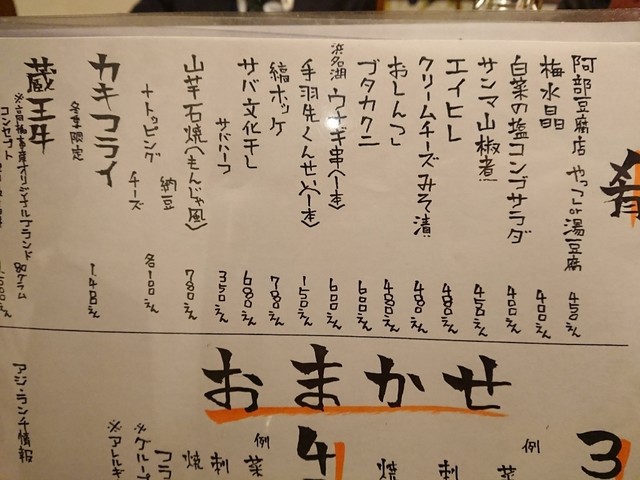 肴
阿部豆腐店 やっこor湯豆腐 450えん
梅水晶 400えん
白菜の塩コンブサラダ 400えん
サンマ山椒煮 450えん
エイヒレ 480えん
クリームチーズみそ漬 480えん
おしんこ 480えん
ブタカクニ 600えん
浜名湖 ウナギ串(一本) 600えん
手羽先くんせい(一本) 150えん
縞ホッケ 780えん
サバ文化干し 680えん
サバハーフ 350えん
山芋石焼(もんじゃ風) 780えん
+トッピング 納豆 チーズ 各100えん
カキフライ 冬季限定 1.48えん
蔵王牛
※高橋畜産オリジナルブランド 80グラム
コンセプト
おまかせ
3
例
菜
刺
焼
4
例
菜
刺
焼
フラ
※グループ
※アトルキ
アジ・ランチ情報